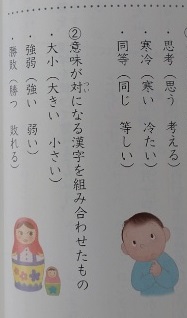 ・思考(思う 考える)
・寒冷(寒い 冷たい)
・同等(同じ 等しい)
②意味が対になる漢字を組み合わせたもの
つい
・大小(大きい 小さい)
・強弱(強い 弱い)
・勝敗(勝つ 敗れる)